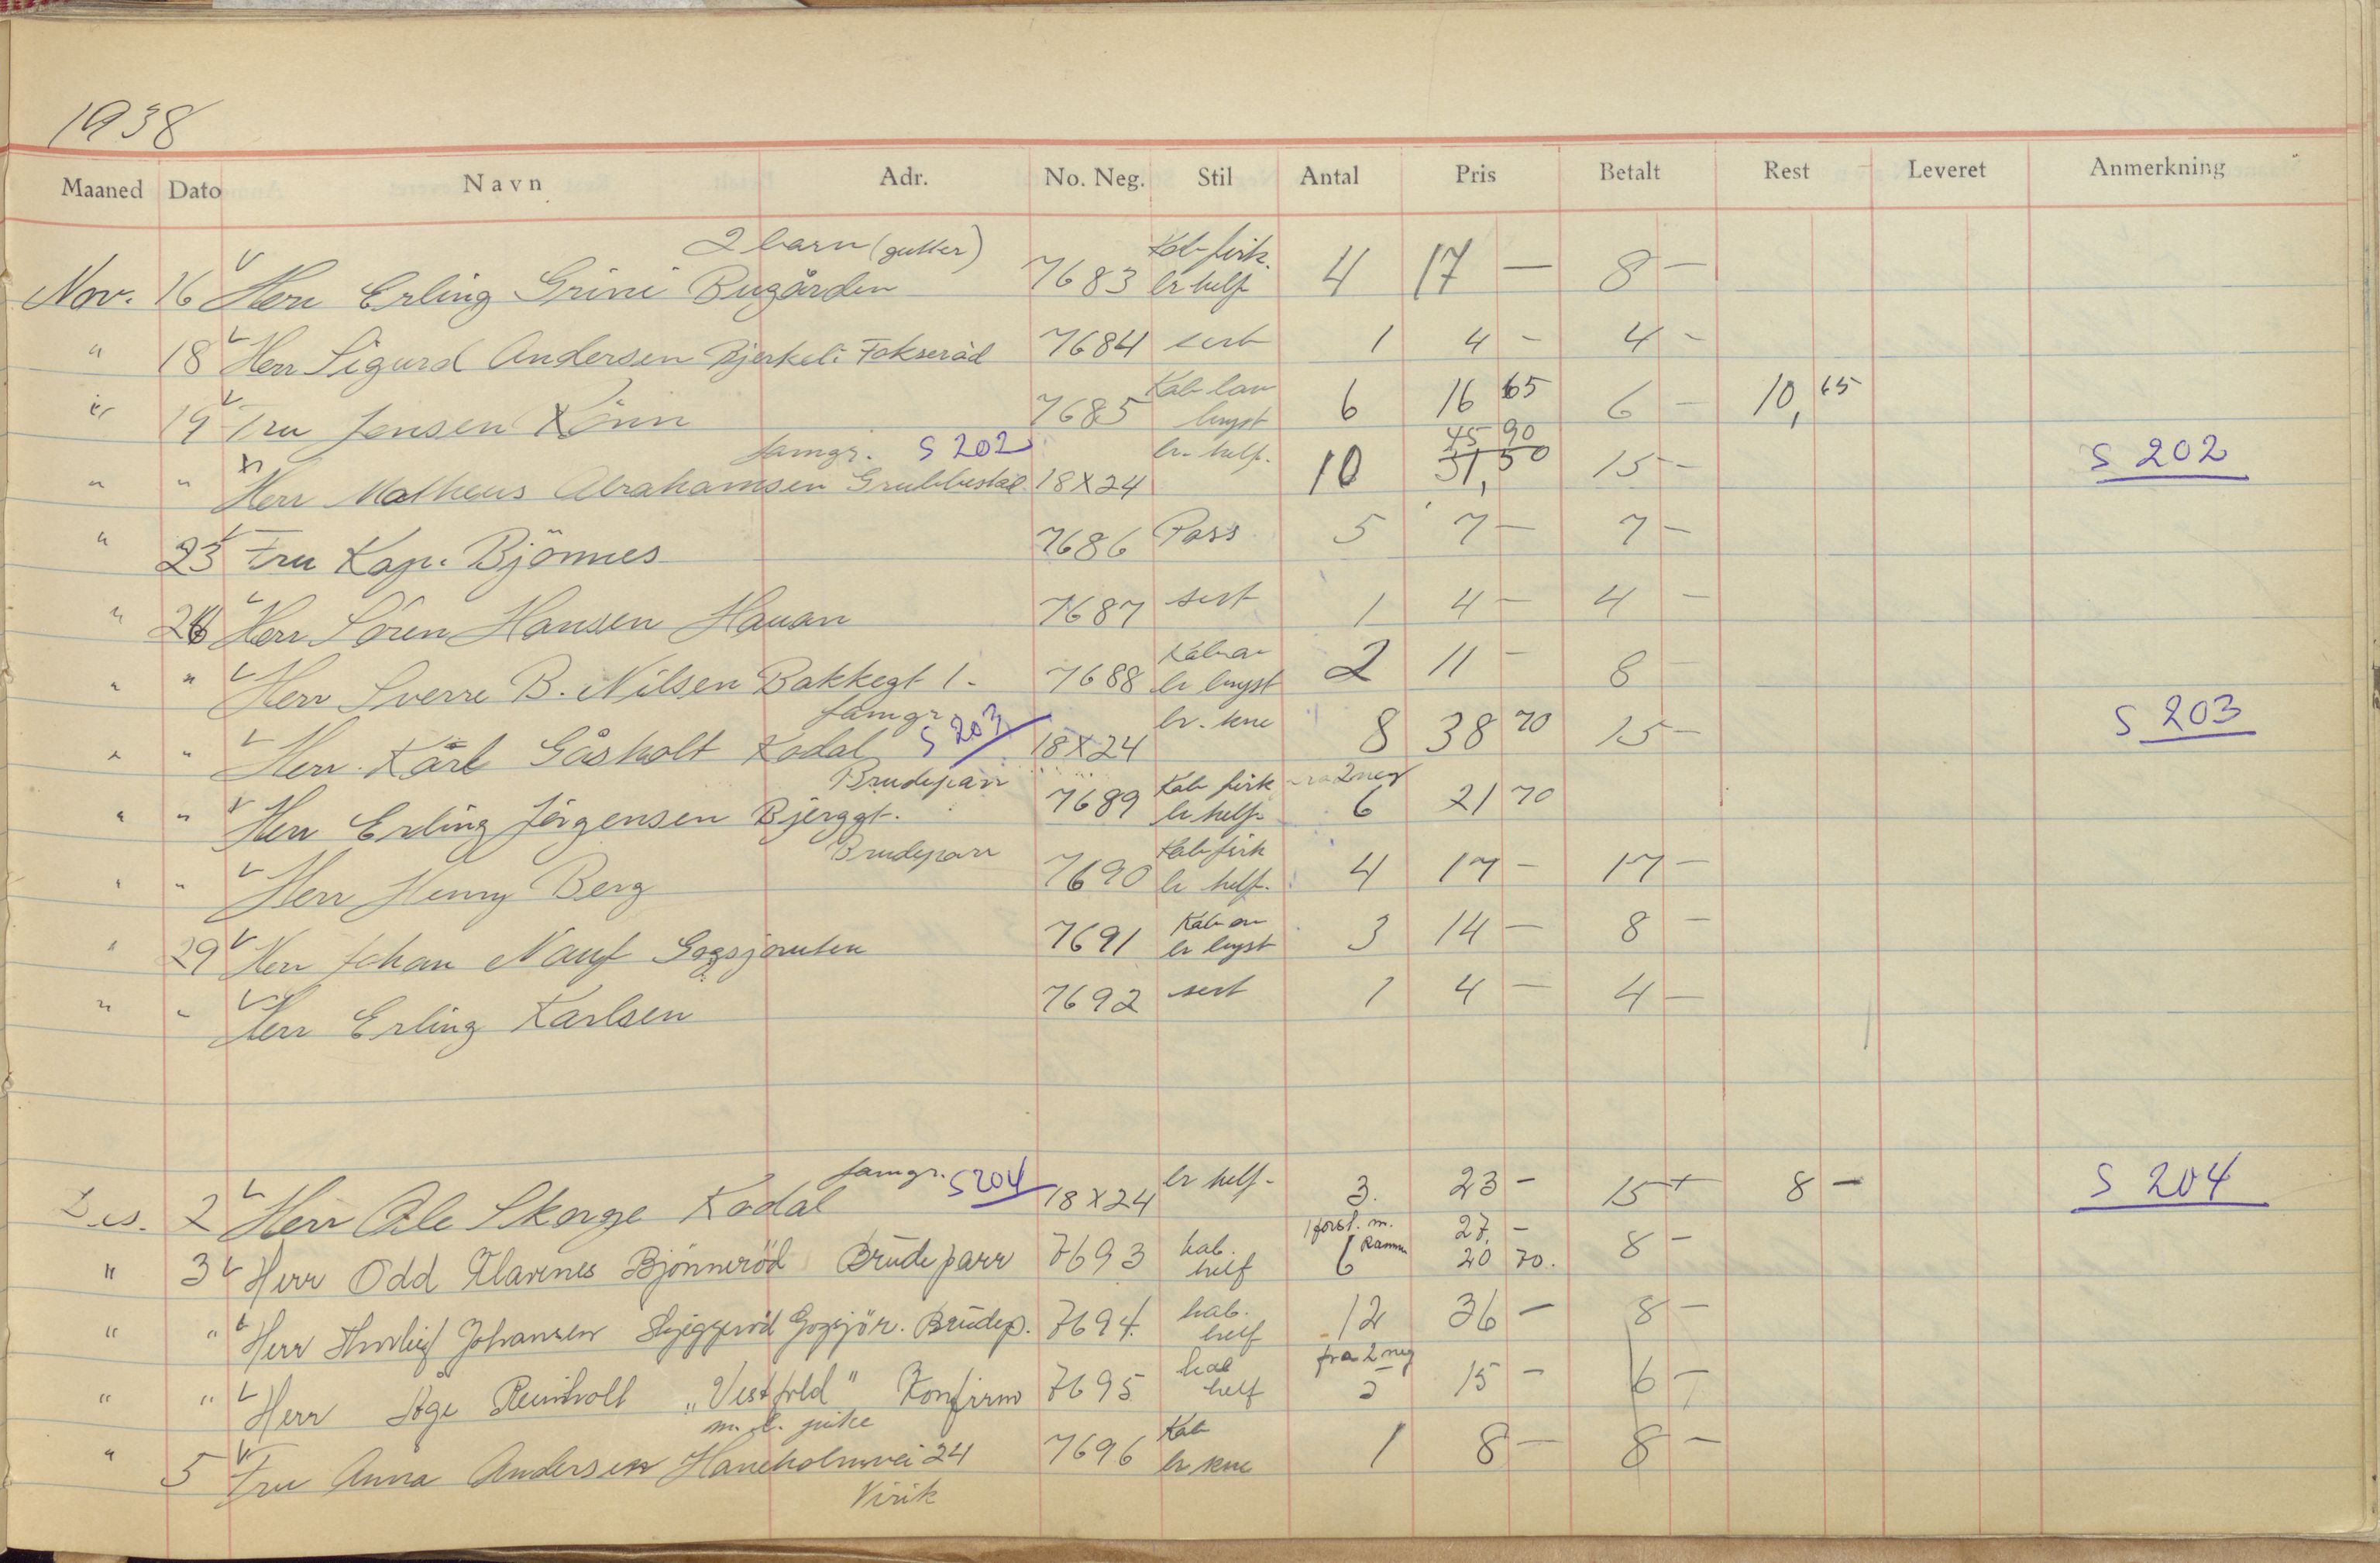 1938
Maaned Dato Navn Adr. No. Neg. Stil Antal Pris Betalt Rest Leveret Anmerkning
2 barn (gutter) Kab firk.
Nov. 16 Herr Erling Grini Bugården 7683 br helf 4 17 — 8 —
" 18 Herr Sigurd Andersen Bjerkeli Fokserød 7684 sert 1 4 - 4 -
Kab
" 19 Fru Jensen 7685 bryst 6 16 65 6 - 10,65
famgr. S 202 br. helf. 45 90
" " Herr Matheus Abrahamsen 18X24 10 31,50 15 - S 202
" 23 Fru Kap. Bjönnes 7686 Pass 5 7 — 7 —
" 26 Herr Sören Hansen Hauan 7687 sert 1 4 — 4 —
Kab av
" " Herr Sverre B. Nilsen Bakkegt 1. 7688 br bryst 2 11 - 8 -
famgr. S 203 br. kne
" " Herr Karl Gåsholt Kodal 18X24 8 38 70 15 - S 203
Brudeparr Kab firk fra 2 neg
" " Herr Erling Jörgensen Bjerggt. 7689 br helf. 6 21 70
Brudeparr Kab firk
" " Herr Henry Berg 7690 br helf. 4 17 - 17 —
Kab av
" 29 Herr Johan 7691 br bryst 3 14 — 8 —
" " Herr Erling Karlsen 7692 sert 1 4 — 4 —
famgr. S 204 br helf -
Des. 2 Herr Ole Skorge Kodal 18X24 3. 23 - 15 + 8 - S 204
1 forst. m. 27, -
" 3 Herr Odd Klavenes Bjönneröd Brudeparr 7693 kab. helf 6 Ramme 20 70. 8 -
" " Herr Thorleif Johansen Skjeggeröd Gogsjör. Brudep. 7694. kab. helf 12 36 — 8 —
fra 2 neg
" " Herr Åge Reinholt „Vestfold" Konfirm 7695 kab helf 15 - 6 -
m. l. pike Kab
" 5 Fru Anna Andersen Haneholmvei 24 7696 br kne 1 8 — 8 —
Virik